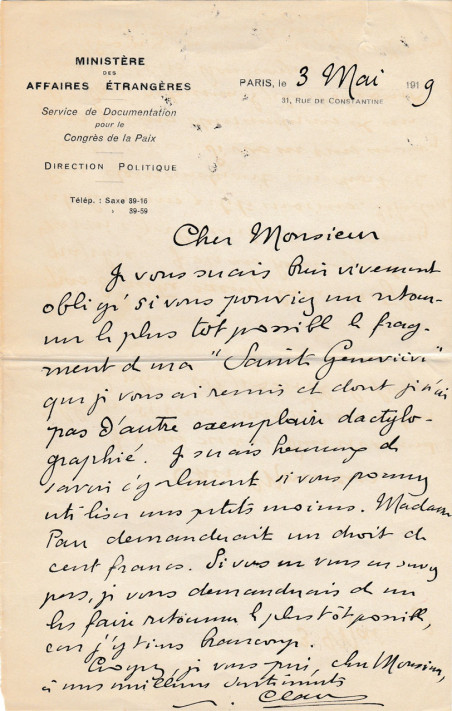 MINISTÈRE
DES
AFFAIRES ÉTRANGÈRES
Service de Documentation
pour le
Congrès de la Paix
DIRECTION POLITIQUE
Télép. : Saxe 89-16
89-59
PARIS, le 3 Mai 1919
31, RUE DE CONSTANTINE
Cher Monsieur
Je vous serais bien vivement
obligé si vous pouviez me retour-
ner le plus tôt possible le frag-
ment de ma "Sainte Geneviève"
que je vous ai remis et dont je n'ai
pas d'autre exemplaire dactylo-
graphié. Je serais heureux de
savoir également si vous pouvez
utiliser mes petits moines. Madame
demanderait un droit de
cent francs. Si vous ne vous en servez
pas, je vous demanderais de me
les faire retourner le plus tôt possible,
car j'y tiens beaucoup.
Croyez, je vous prie, cher Monsieur,
à mes meilleurs sentiments